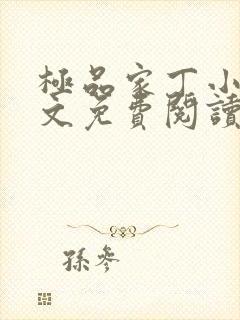 極品家丁小
文免費閱讀
孫參